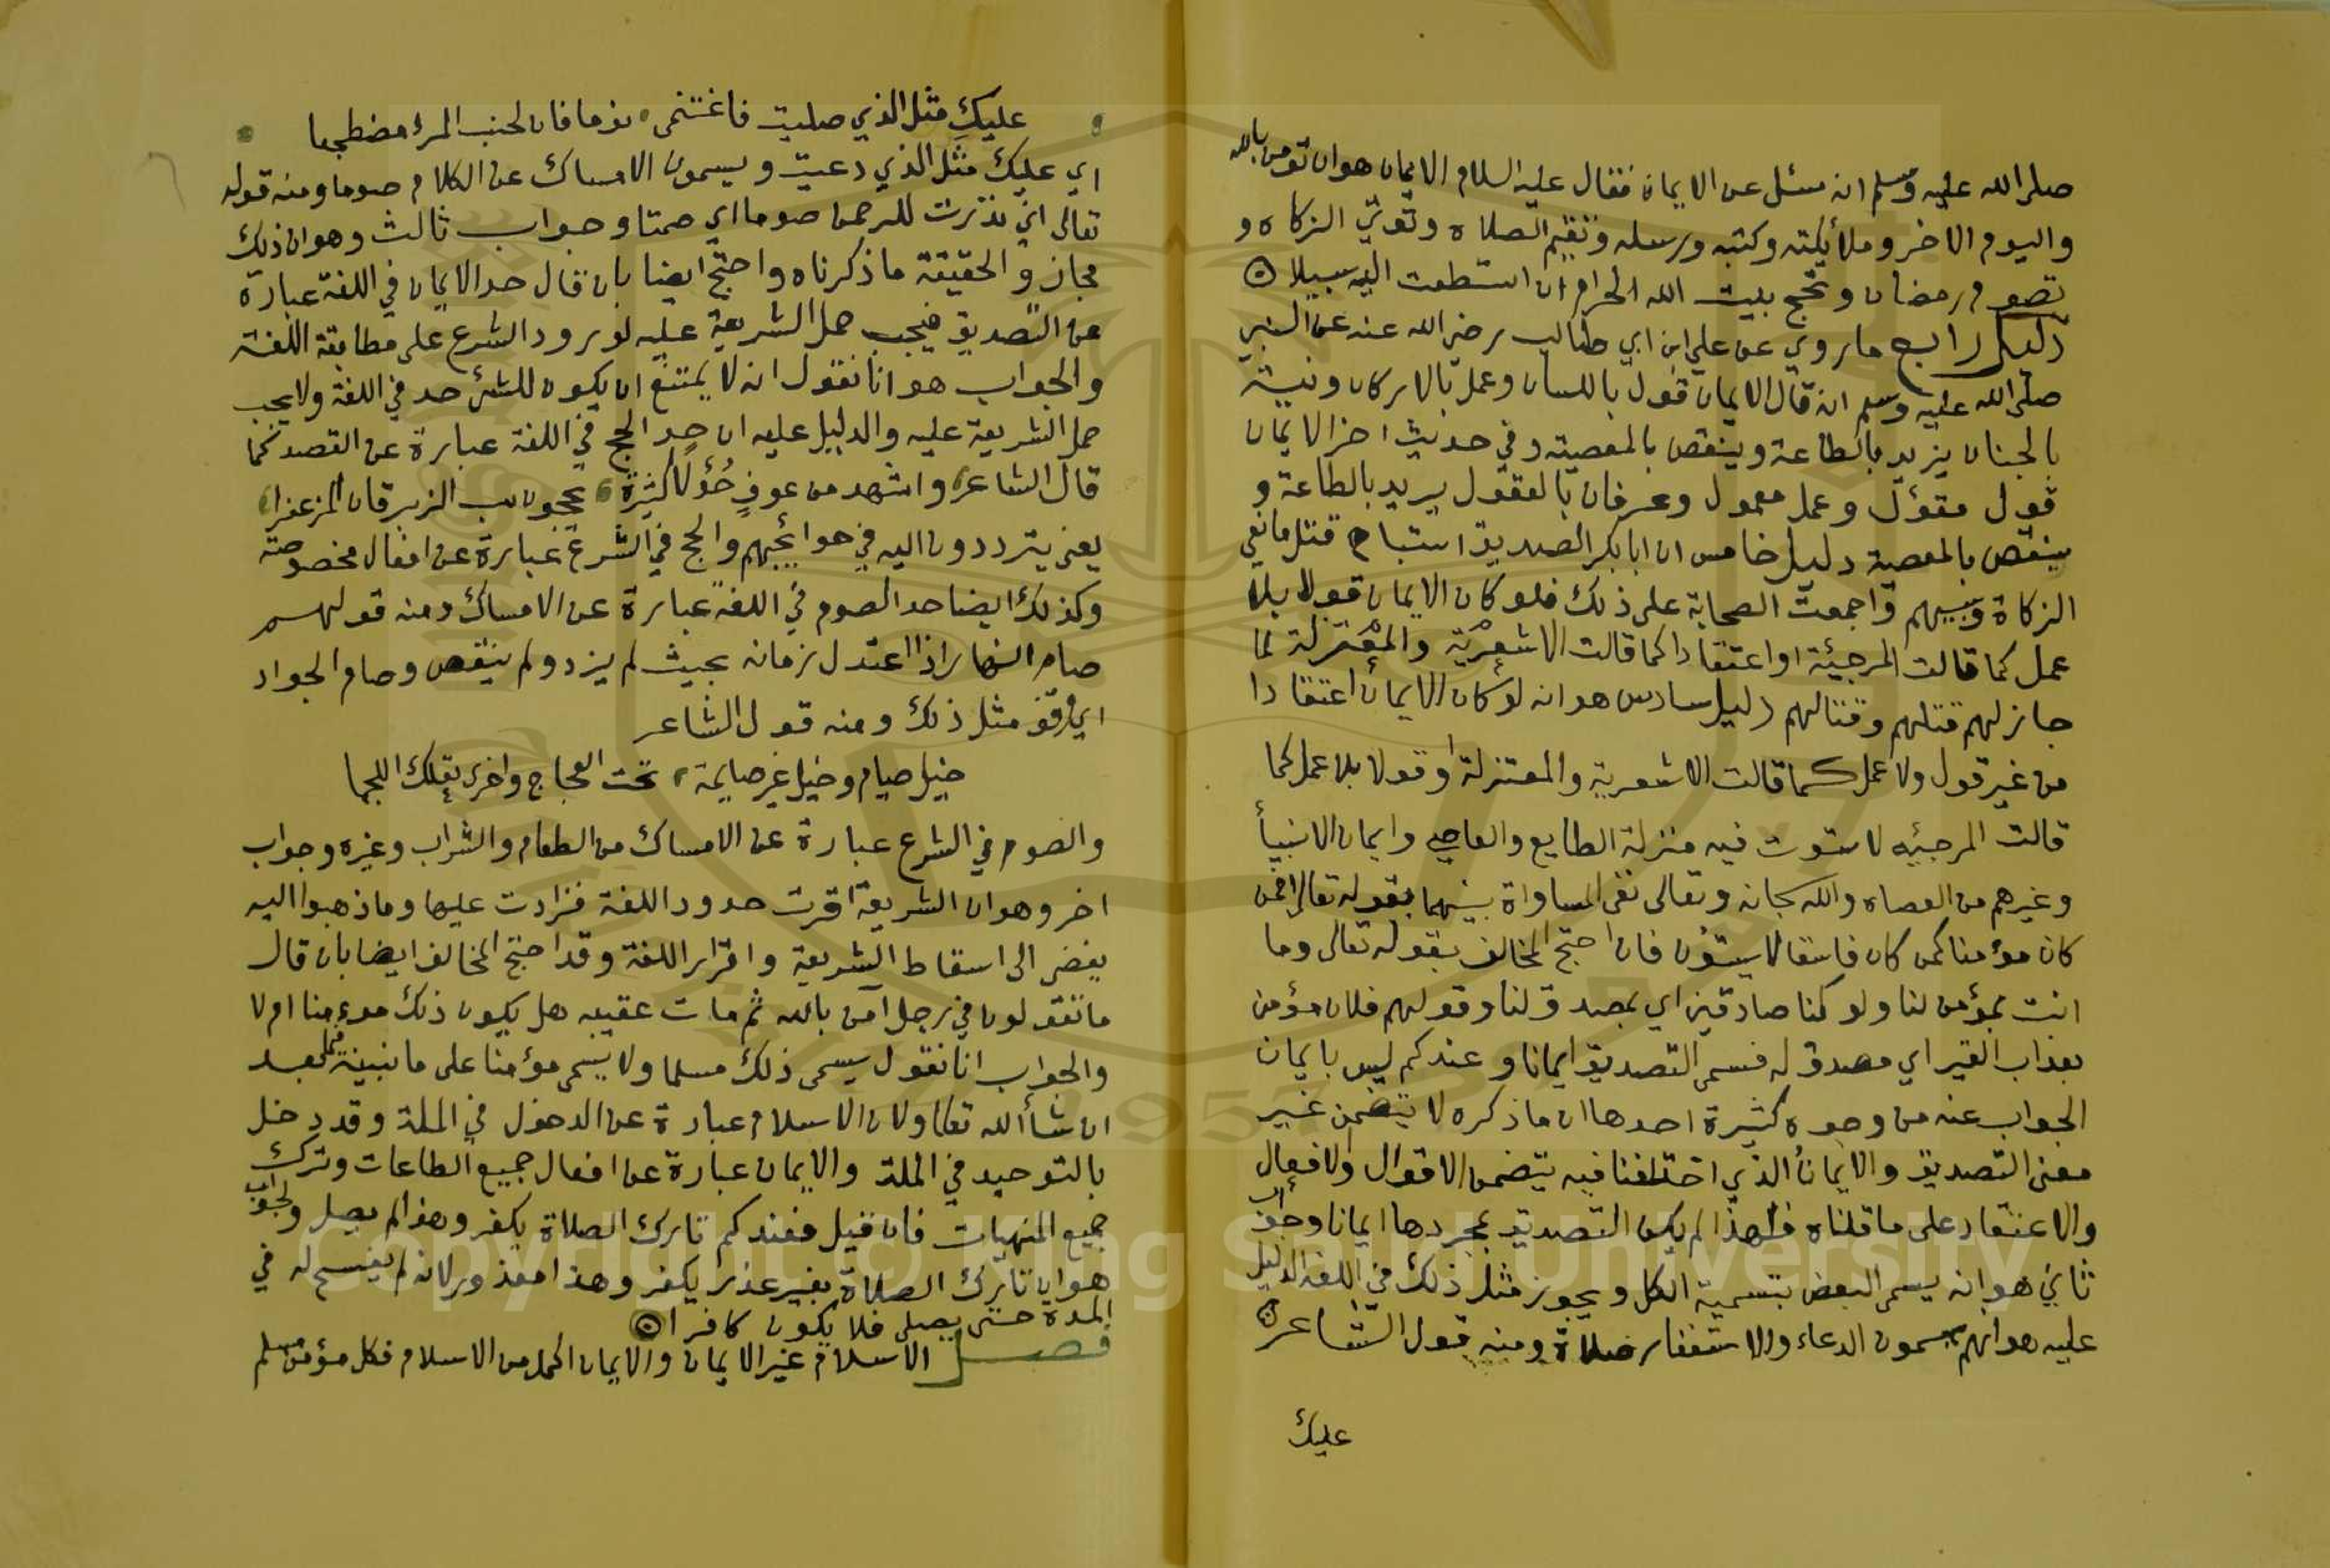 صلى الله عليه وسلم انه سئل عن الايمان فقال عليه السلام الايمان هو ان تومن بالله
واليوم الاخر وملائكته وكتبه ورسله وتقيم الصلاة وتؤتي الزكاه و
تصوم رمضان وتحج بيت الله الحرام ان استطعت اليه سبيلا
دليل رابع ما روي عن علي ابن ابي طالب رضي الله عنه عن النبي
صلى الله عليه وسلم انه قال الايمان قول باللسان وعمل بالاركان ونية
بالجنان يزيد بالطاعة وينقص بالمعصية وفي حديث اخر الايمان
قول مقول وعمل معمول وعرفان بالعقول يزيد بالطاعة و
ينقص بالمعصية دليل خامس ان ابا بكر الصديق استباح قتل مانعي
الزكاة وسبيهم واجمعت الصحابة على ذلك فلو كان الايمان قولا بلا
عمل كما قالت المرجئة او اعتقادا كما قالت الاشعرية والمعتزلة لما
جاز لهم قتلهم وقتالهم دليل سادس هو انه لو كان الايمان اعتقادا
من غير قول ولا عمل كما قالت الاشعرية والمعتزلة او قولا بلا عمل كما
قالت المرجئيه لاستوت فيه منزلة الطايع والعاصي وايمان الانبيأ
وغيرهم من العصاه والله سبحانه وتعالى نفى المساواة بينهما بقوله تعالى افمن
كان مؤمنا كمن كان فاسقا لا يستؤن فان احتج المخالف بقوله تعالى وما
انت بمؤمن لنا ولو كنا صادقين اي بمصدق لنا وقولهم فلان مؤمن
بعذاب القبر اي مصدق له فسمى التصديق ايمانا وعندكم ليس بايمان
الجواب عنه من وجوه كثيرة احدها ان ما ذكره لا يتضمن غير
معنى التصديق والايمان الذي اختلفنا فيه يتضمن الاقوال والافعال
والاعتقاد على ما قلناه فلهذا لم يكن التصديق بمجردها ايمانا وجواب
ثاني هو انه يسمى البعض بتسمية الكل ويجوز مثل ذلك في اللغة الدليل
عليه هو انهم يسمون الدعاء والاستغفار صلاة ومنه قول الشاعر
عليك
عليك مثل الذي صليت فاغتنمي نوما فان لجنب المرء مضطجعا
اي عليك مثل الذي دعيت ويسمون الامساك عن الكلام صوما ومنه قوله
تعالى اني نذرت للرحمن صوما اي صمتا وجواب ثالث وهو ان ذلك
مجاز والحقيقة ما ذكرناه واحتج ايضا بان قال حد الايمان في اللغة عبارة
عن التصديق فيجب حمل الشريعة عليه لورود الشرع على مطابقة اللغة
والجواب هو انا نقول انه لا يمتنع ان يكون للشئ حد في اللغة ولا يجب
حمل الشريعة عليه والدليل عليه ان حد الحج في اللغة عبارة عن القصد كما
قال الشاعر واشهد من عوف حؤلا كثيرة يحجون سب الزبرقان المزعفرا
يعني يترددون اليه في حوائجهم والحج في الشرع عبارة عن افعال مخصوصة
وكذلك ايضا حد الصوم في اللغة عبارة عن الامساك ومنه قولهم
صام النهار اذا اعتدل زمانه بحيث لم يزد ولم ينقص وصام الجواد
اي وقف مثل ذلك ومنه قول الشاعر
خيل صيام وخيل غير صايمة تحت العجاج واخرى تعلك اللجما
والصوم في الشرع عبارة عن الامساك من الطعام والشراب وغيره وجواب
اخر وهو ان الشريعة اقرت حدود اللغة فزادت عليها وما ذهبوا اليه
يفضي الى اسقاط الشريعة واقرار اللغة وقد احتج المخالف ايضا بان قال
ما تقولون في رجل آمن بالله ثم مات عقيبه هل يكون ذلك موءمنا ام لا
والجواب انا نقول يسمى ذلك مسلما ولا يسمى مؤمنا على ما نبينه فيما بعد
ان شأ الله تعالى ولان الاسلام عبارة عن الدخول في الملة وقد دخل
بالتوحيد في الملة والايمان عبارة عن افعال جميع الطاعات وترك
جميع المنهيات فان قيل فعندكم تارك الصلاة يكفر وهذا لم يصل والجواب
هو ان تارك الصلاة بغير عذر يكفر وهذا معذور لانه لم يفسح له في
المدة حتى يصلي فلا يكون كافرا
فصل الاسلام غير الايمان والايمان اكمل من الاسلام فكل مؤمن مسلم
Copyright © King Saud University